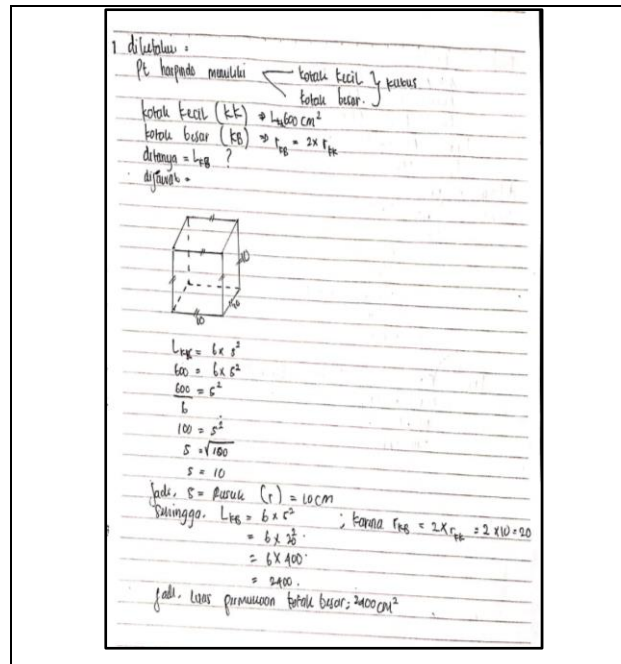 1 diketahui :
Pt harpindo memiliki kotak kecil } kubus
kotak besar.
kotak kecil (KK) ⇒ L = 600 cm²
kotak besar (KB) ⇒ r_KB = 2 x r_KK
ditanya = L_KB ?
dijawab =
10
10
10
L_KK = 6 x s²
600 = 6 x s²
600/6 = s²
100 = s²
s = √100
s = 10
Jadi, s = Rusuk (r) = 10 cm
Sehingga, L_KB = 6 x s² ; karna r_KB = 2 x r_KK = 2 x 10 = 20
= 6 x 20²
= 6 x 400
= 2400.
Jadi, luas permukaan kotak besar : 2400 cm²